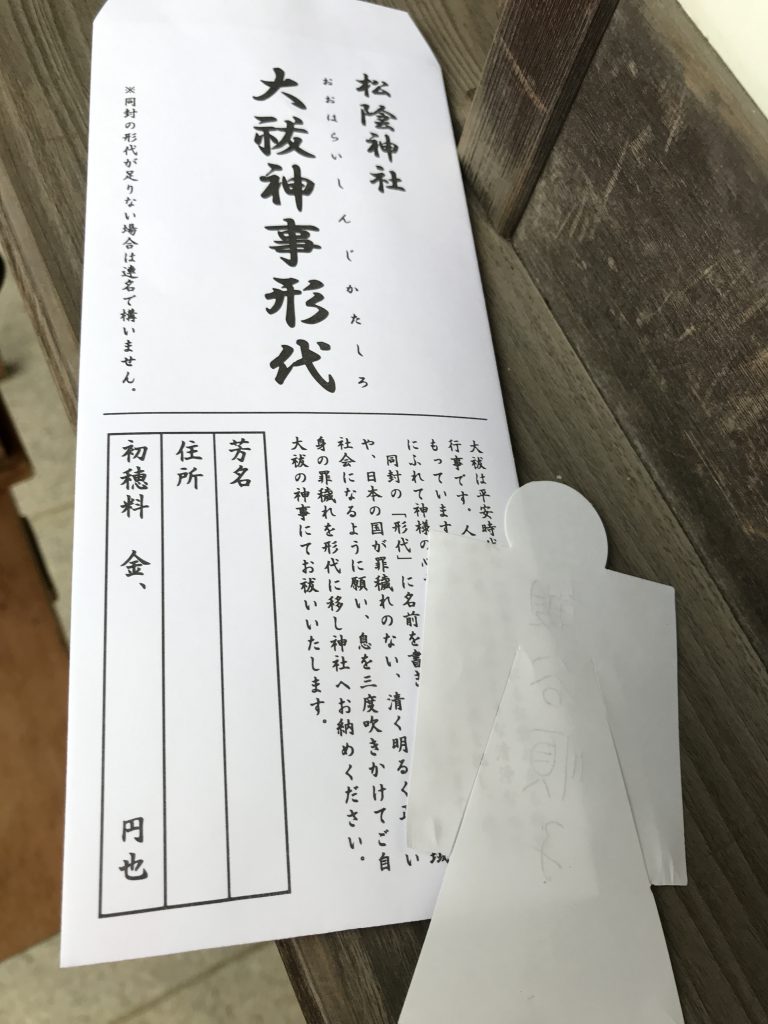 松陰神社
おおはらいしんじかたしろ
大祓神事形代
※同封の形代が足りない場合は連名で構いません。
大祓は平安時
行事です。人
もっています
にふれて神様の
同封の「形代」に名前を書き
や、日本の国が罪穢れのない、清く明るく正 い
社会になるように願い、息を三度吹きかけてご自
身の罪穢れを形代に移し神社へお納めください。
大祓の神事にてお祓いいたします。
芳名
住所
初穂料 金、 円也
谷順子